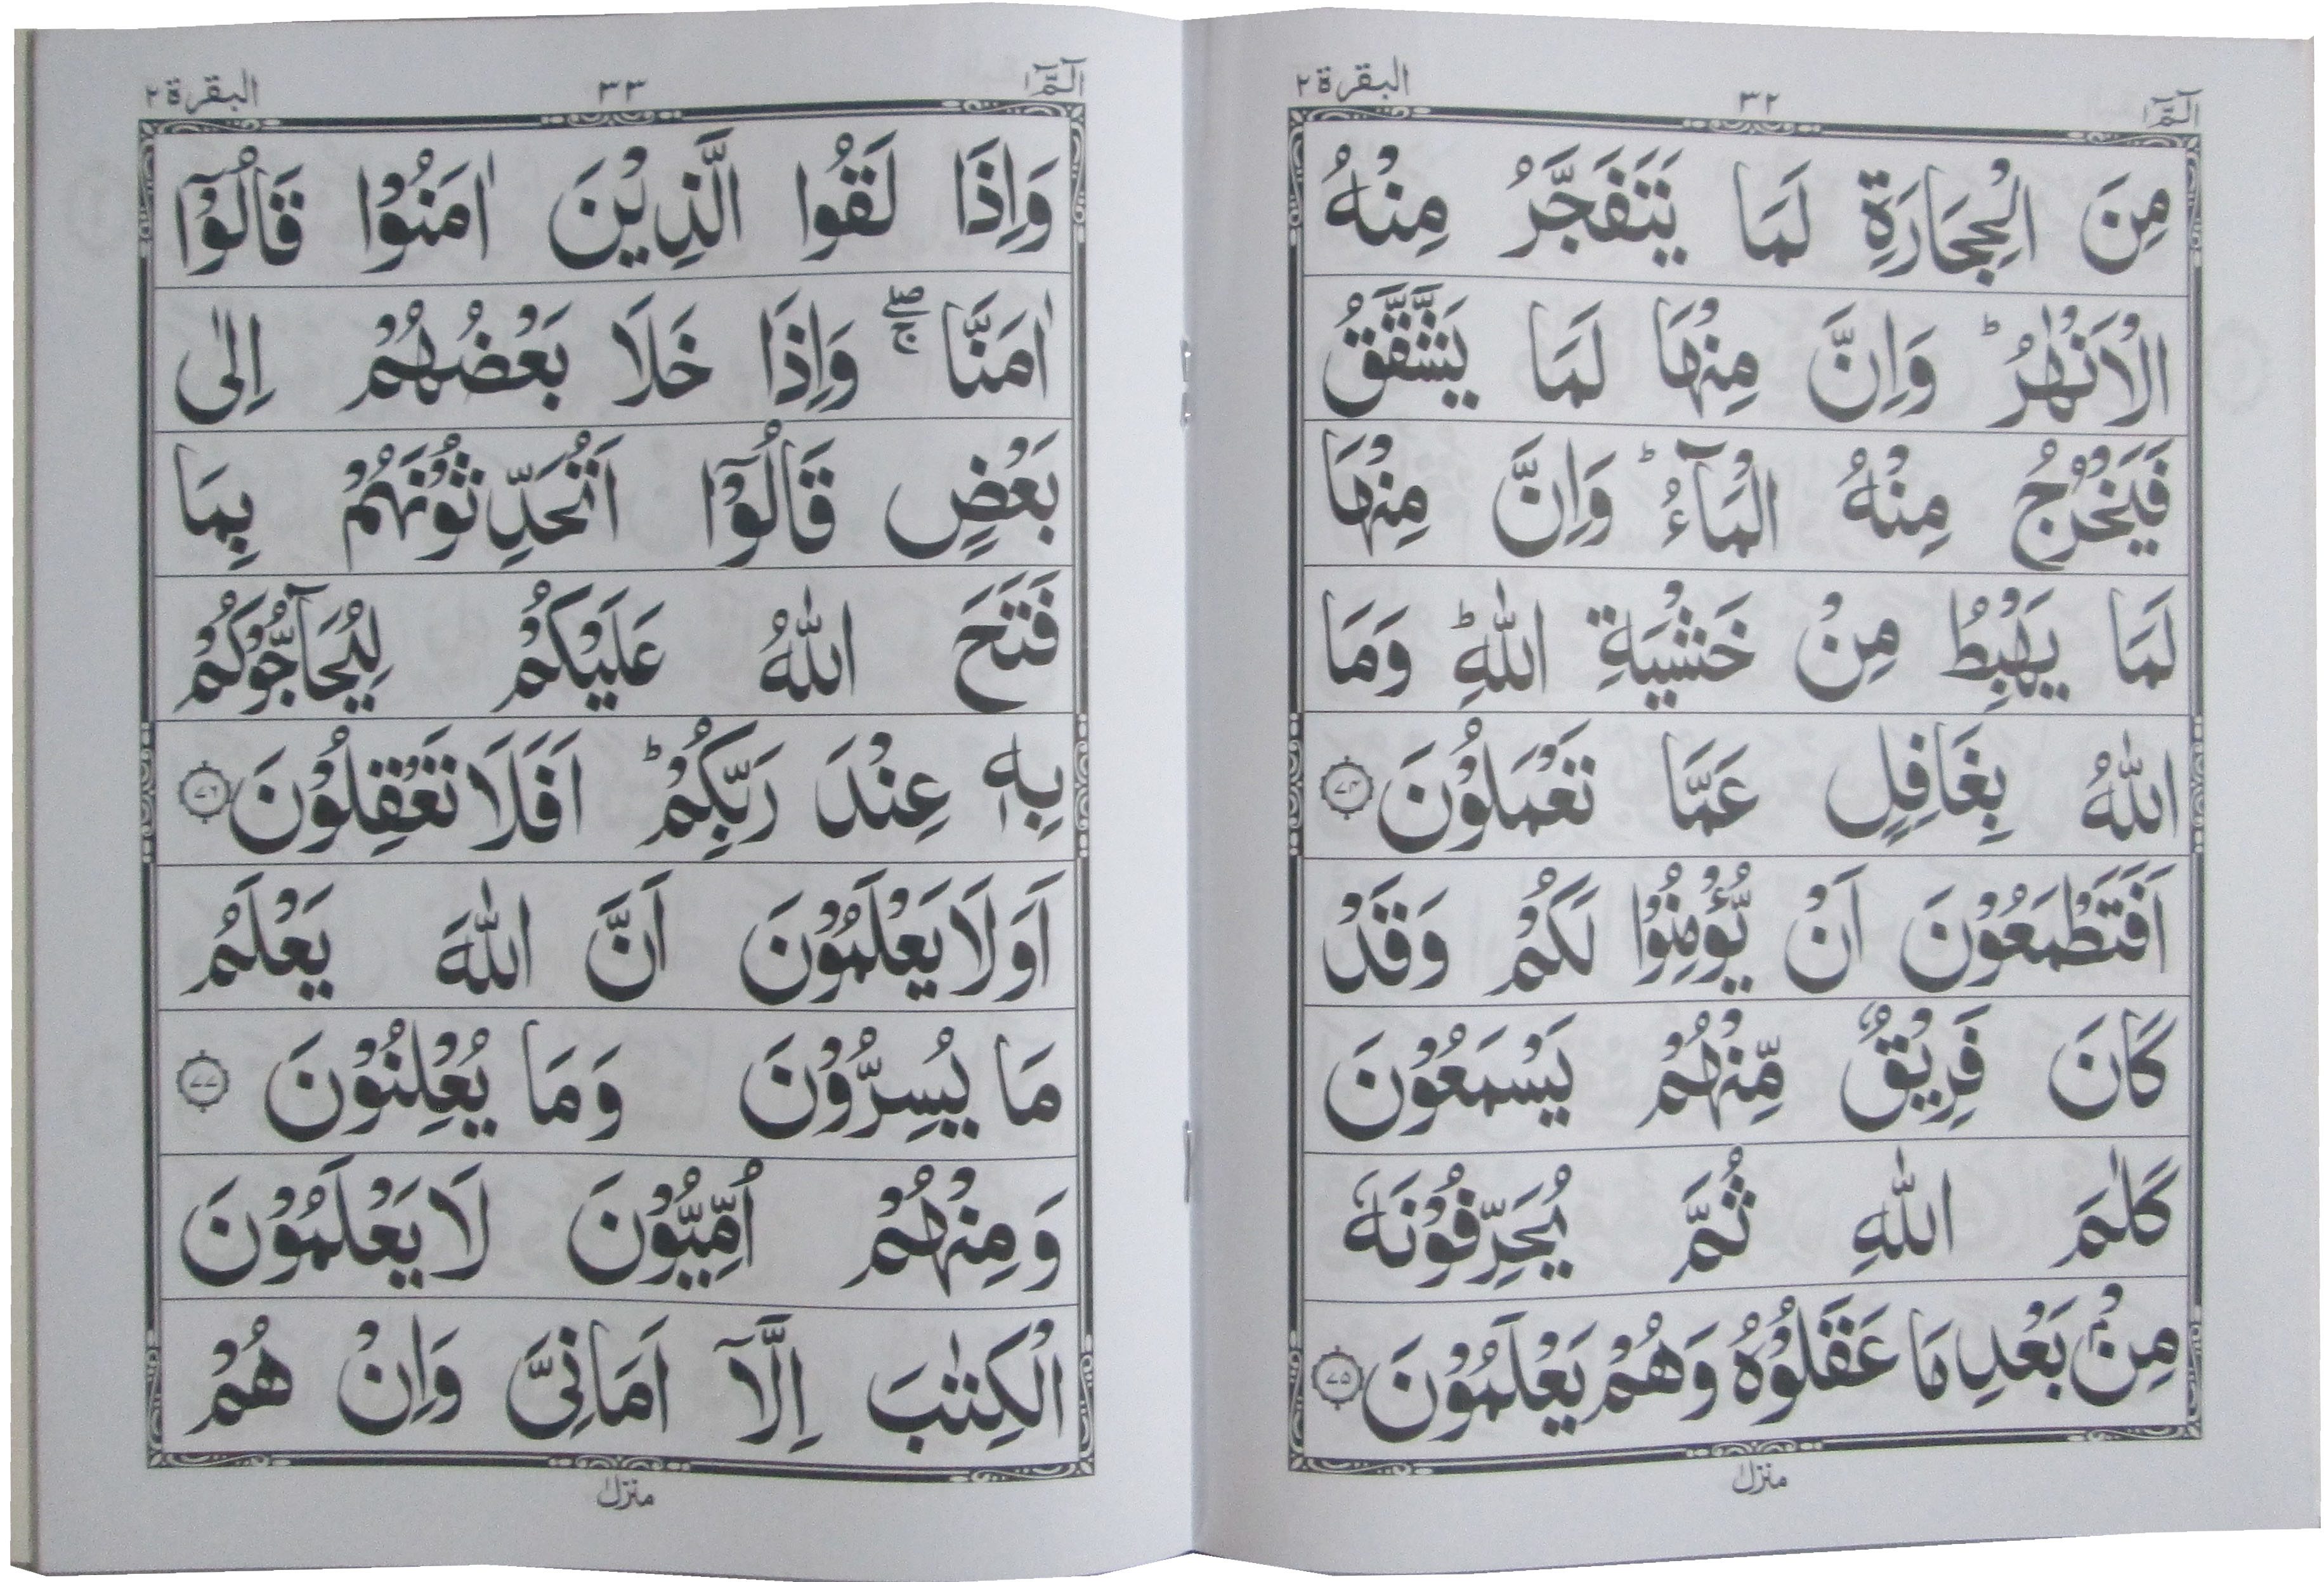 الٓمّٓ ١ ٣٢ البقرة ٢
مِنَ الْحِجَارَةِ لَمَا يَتَفَجَّرُ مِنْهُ
الْاَنْهٰرُ ؕ وَاِنَّ مِنْهَا لَمَا يَشَّقَّقُ
فَيَخْرُجُ مِنْهُ الْمَآءُ ؕ وَاِنَّ مِنْهَا
لَمَا يَهْبِطُ مِنْ خَشْيَةِ اللّٰهِ ؕ وَمَا
اللّٰهُ بِغَافِلٍ عَمَّا تَعْمَلُوْنَ ﴿۷۴﴾
اَفَتَطْمَعُوْنَ اَنْ يُّؤْمِنُوْا لَكُمْ وَقَدْ
كَانَ فَرِيْقٌ مِّنْهُمْ يَسْمَعُوْنَ
كَلٰمَ اللّٰهِ ثُمَّ يُحَرِّفُوْنَهٗ
مِنْۢ بَعْدِ مَا عَقَلُوْهُ وَهُمْ يَعْلَمُوْنَ ﴿۷۵﴾
منزل ١
الٓمّٓ ١ ٣٣ البقرة ٢
وَاِذَا لَقُوا الَّذِيْنَ اٰمَنُوْا قَالُوْۤا
اٰمَنَّا ۖۚ وَاِذَا خَلَا بَعْضُهُمْ اِلٰى
بَعْضٍ قَالُوْۤا اَتُحَدِّثُوْنَهُمْ بِمَا
فَتَحَ اللّٰهُ عَلَيْكُمْ لِيُحَآجُّوْكُمْ
بِهٖ عِنْدَ رَبِّكُمْ ؕ اَفَلَا تَعْقِلُوْنَ ﴿۷۶﴾
اَوَلَا يَعْلَمُوْنَ اَنَّ اللّٰهَ يَعْلَمُ
مَا يُسِرُّوْنَ وَمَا يُعْلِنُوْنَ ﴿۷۷﴾
وَمِنْهُمْ اُمِّيُّوْنَ لَا يَعْلَمُوْنَ
الْكِتٰبَ اِلَّاۤ اَمَانِىَّ وَاِنْ هُمْ
منزل ١